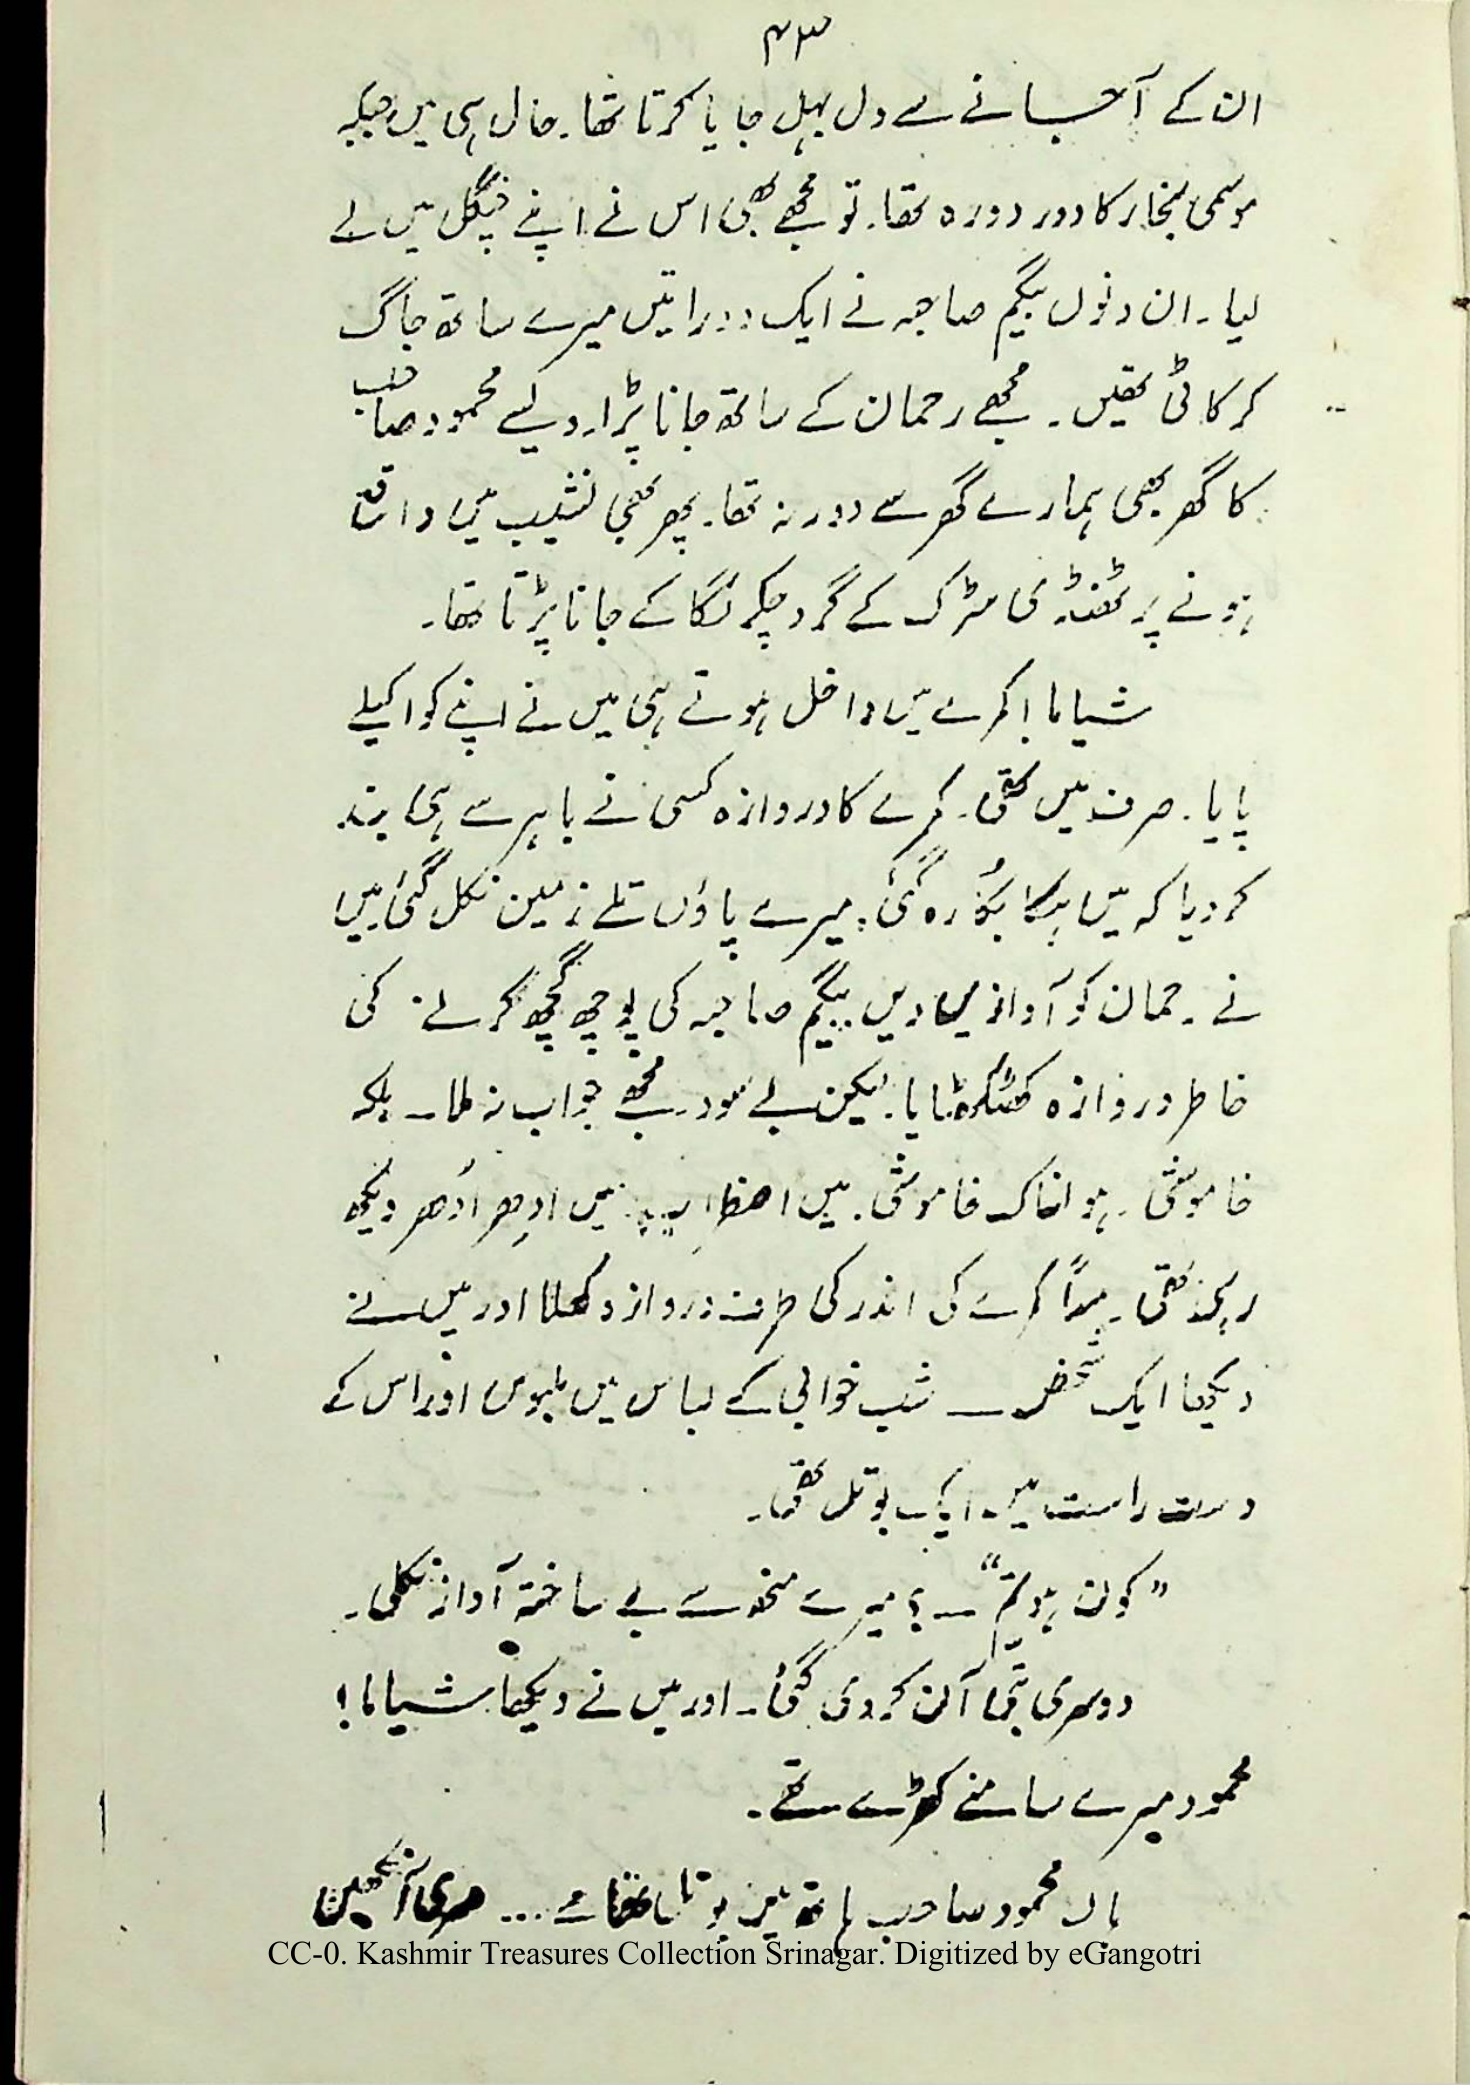 ۴۳
ان کے آجانے سے دل بہل جایا کرتا تھا۔ حال ہی میں جبکہ
موسمی بخار کا دور دورہ تھا۔ تو مجھے بھی اس نے اپنے چنگل میں لے
لیا۔ ان دنوں بیگم صاحبہ نے ایک دو راتیں میرے ساتھ جاگ
کر کاٹی تھیں۔ مجھے رحمان کے ساتھ جانا پڑا۔ ویسے محمود صاحب
کا گھر بھی ہمارے گھر سے دور نہ تھا۔ پھر بھی نشیب میں واقع
ہونے پر ٹھنڈی سڑک کے گرد چکر لگا کے جانا پڑتا تھا۔
شیاما! کمرے میں داخل ہوتے ہی میں نے اپنے کو اکیلے
پایا۔ صرف میں تھی۔ کمرے کا دروازہ کسی نے باہر سے ہی بند
کر دیا کہ میں ہکا بکا رہ گئی۔ میرے پاؤں تلے زمین نکل گئی میں
نے رحمان کو آوازیں دیں بیگم صاحبہ کی پوچھ گچھ کرنے کی
خاطر دروازہ کھٹکھٹایا۔ لیکن بے سود۔ مجھے جواب نہ ملا۔ بلکہ
خاموشی۔ ہولناک خاموشی۔ میں اضطراب میں ادِھر اُدھر دیکھ
رہی تھی۔ کمرے کی اندر کی طرف دروازہ کھلا اور میں نے
دیکھا ایک شخص ــ شب خوابی کے لباس میں ملبوس اور اس کے
دست راست میں ایک بوتل تھی۔
"کون ہو تم" ــ؟ میرے منھ سے بے ساختہ آواز نکلی۔
دوسری بتّی آن کر دی گئی۔ اور میں نے دیکھا شیاما!
محمود میرے سامنے کھڑے تھے۔
ہاں محمود صاحب ہاتھ میں بوتل تھامے ... میری آنکھیں
CC-0. Kashmir Treasures Collection Srinagar. Digitized by eGangotri